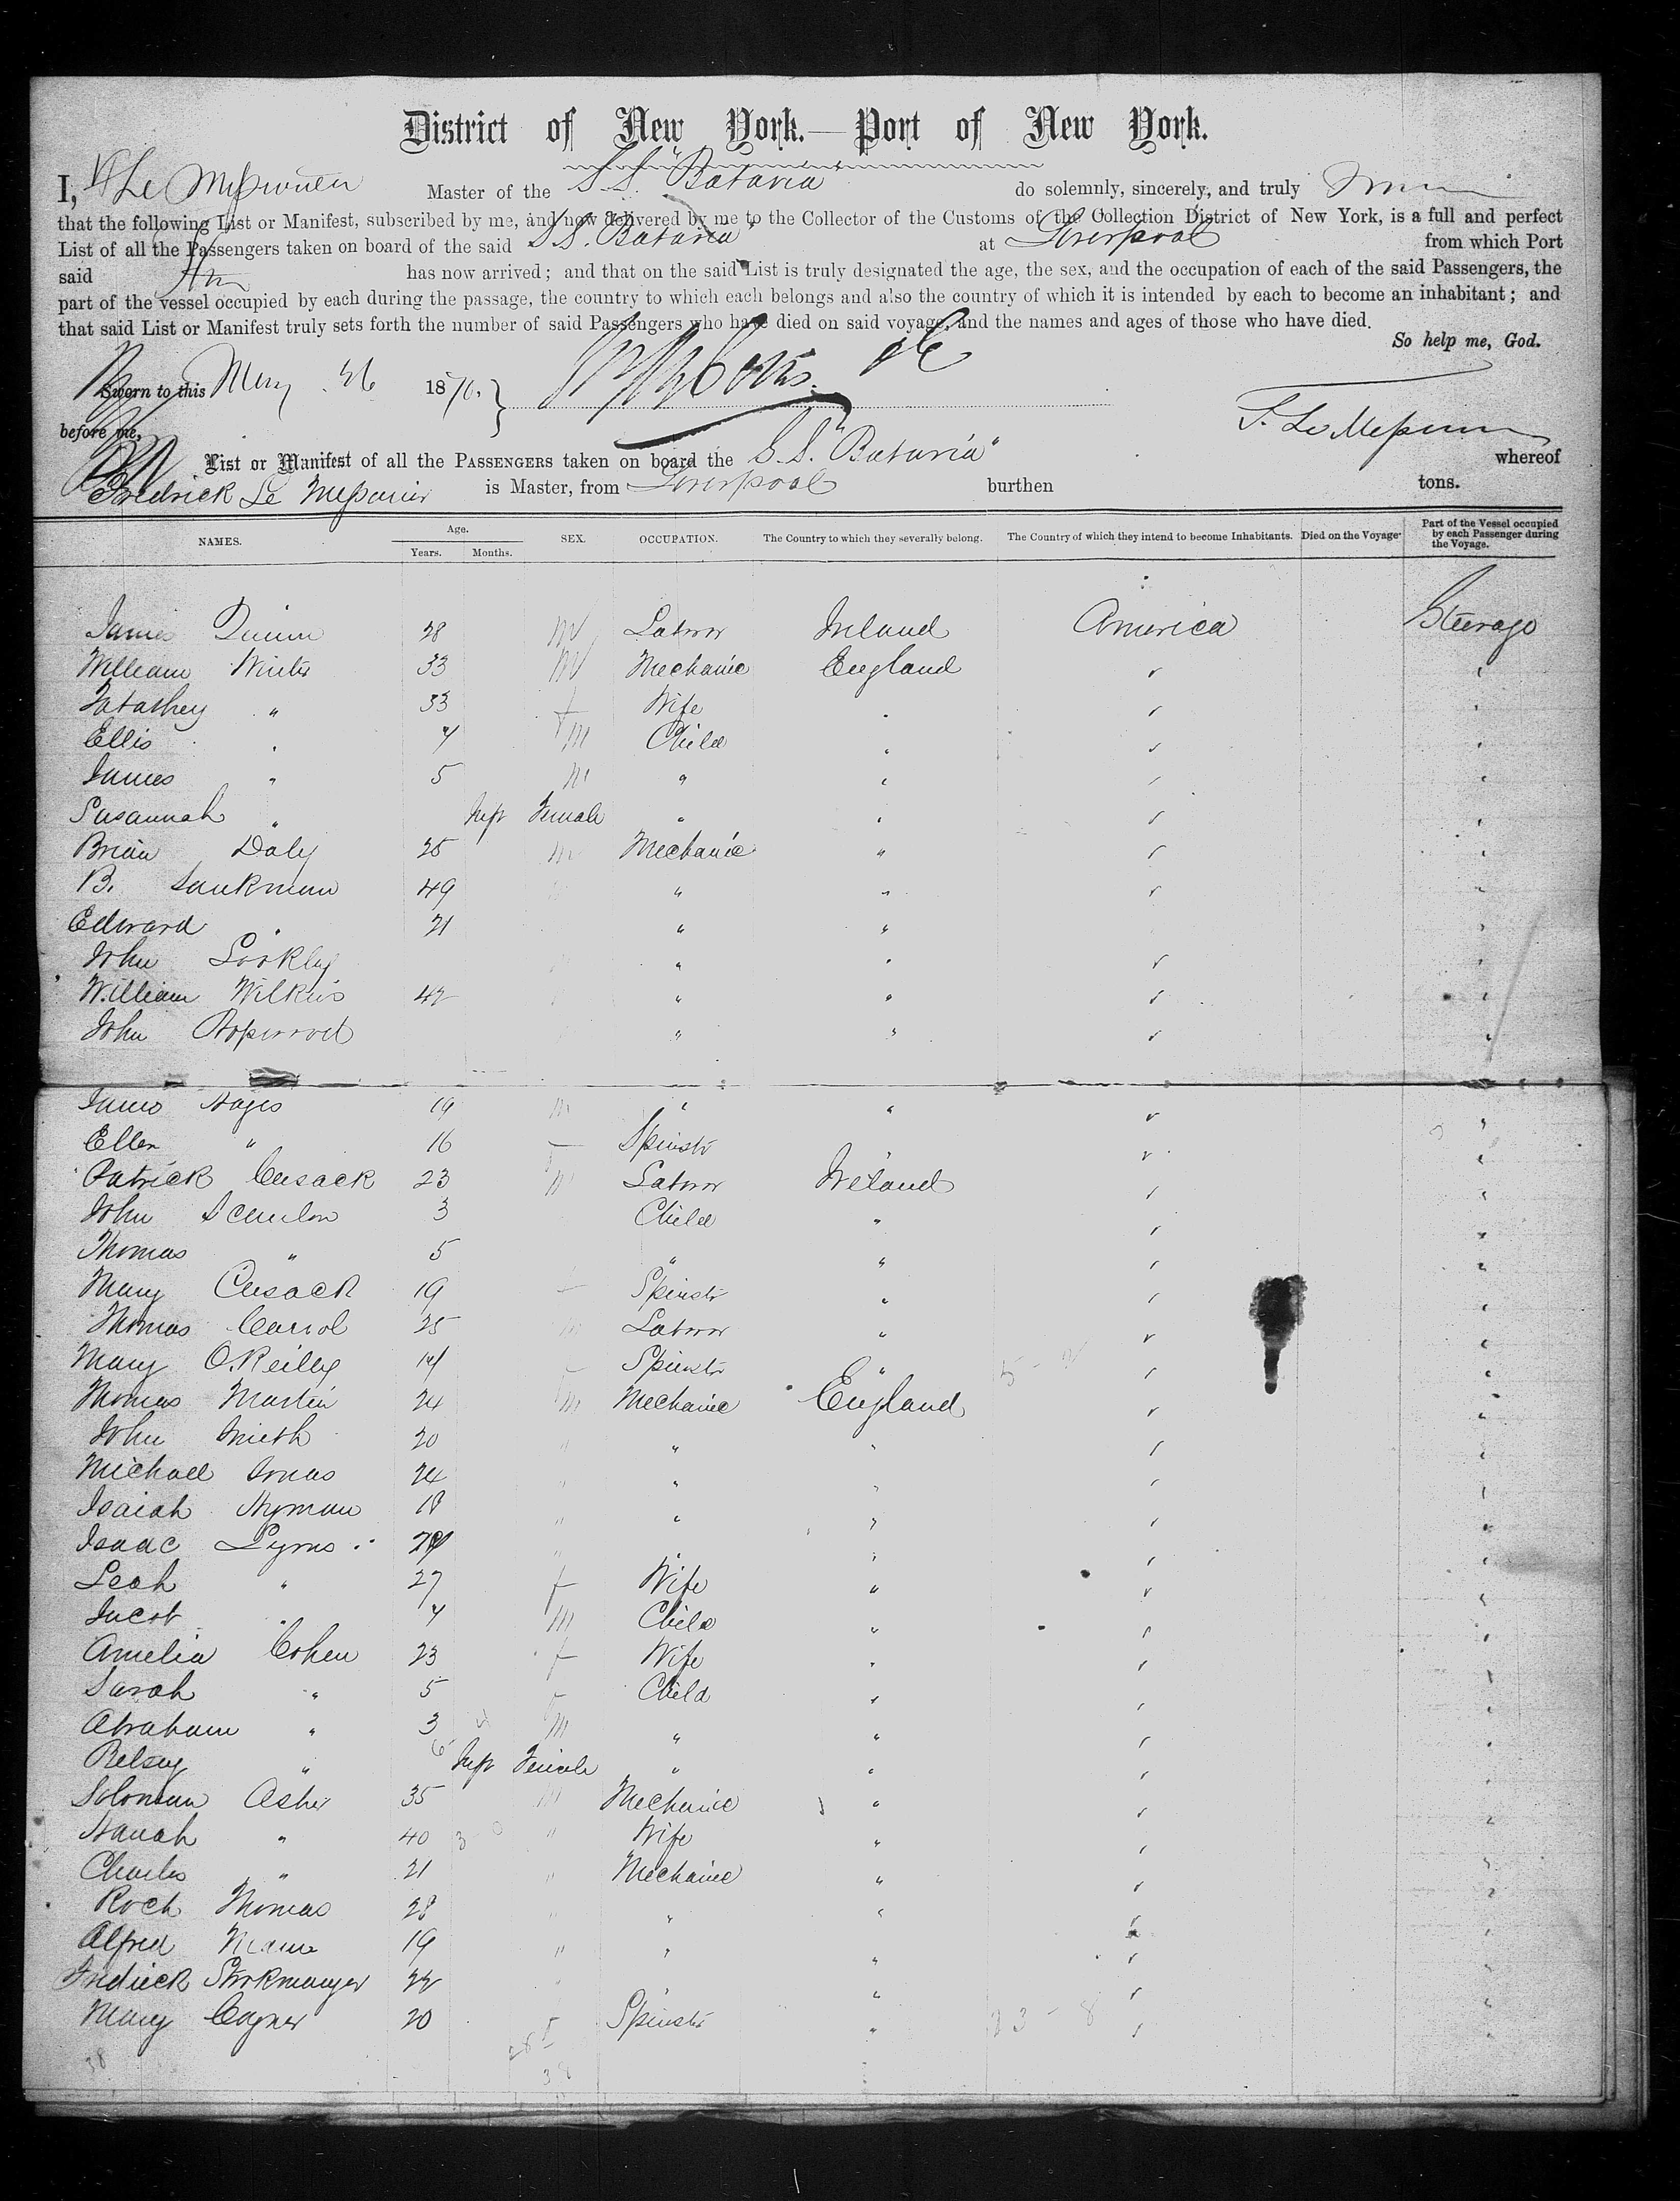 District of New York.—Port of New York.
I, F Le Mesurier Master of the S.S. "Batavia" do solemnly, sincerely, and truly swear
that the following List or Manifest, subscribed by me, and now delivered by me to the Collector of the Customs of the Collection District of New York, is a full and perfect
List of all the Passengers taken on board of the said S.S. "Batavia" at Liverpool from which Port
said has now arrived; and that on the said List is truly designated the age, the sex, and the occupation of each of the said Passengers, the
part of the vessel occupied by each during the passage, the country to which each belongs and also the country of which it is intended by each to become an inhabitant; and
that said List or Manifest truly sets forth the number of said Passengers who have died on said voyage, and the names and ages of those who have died.
So help me, God.
Sworn to this May 26 1870.
before me, F. Le Mesurier
List or Manifest of all the PASSENGERS taken on board the S.S. "Batavia" whereof
Fredrick Le Mesurier is Master, from Liverpool burthen tons.
NAMES. Age. Years. Months. SEX. OCCUPATION. The Country to which they severally belong. The Country of which they intend to become Inhabitants. Died on the Voyage. Part of the Vessel occupied by each Passenger during the Voyage.
James Quinn 28 M Labour Ireland America Steerage
William Winter 33 M Mechanic England
" 33 f Wife
Ellis " 4 m Child "
James " 5 m " "
Susannah " Inft Female " "
Brian Daly 25 m Mechanic "
B. Lankman 49 " "
Edward " 21 " "
John " "
William Wilkins 42 " "
John " "
James Hayes 19 m " "
Ellen " 16 Spinstr "
Patrick Cusack 23 m Labour Ireland
John Scanlon 3 Child "
Thomas " 5 " "
Mary Cusack 19 f Spinstr "
Thomas Carrol 25 m Labour "
Mary O.Reilly 14 Spinstr "
Thomas Martin 24 m Mechanic England
John Smith 20 " " "
Michael Jonas 24 " " "
Isaiah Hyman 18 " " "
Isaac Lyons 29 " " "
Leah " 27 f Wife "
Jacob " 4 m Child "
Amelia Cohen 23 f Wife "
Sarah " 5 f Child "
Abraham " 3 m " "
Betsey " Inft Female " "
Solomon Asher 35 m Mechanic "
Hanah " 40 " Wife "
Charles " 21 " Mechanic "
Roch Thomas 28 " " "
Alfred Mann 19 " " "
Fredrick 22 " "
Mary 20 f Spinstr "
38